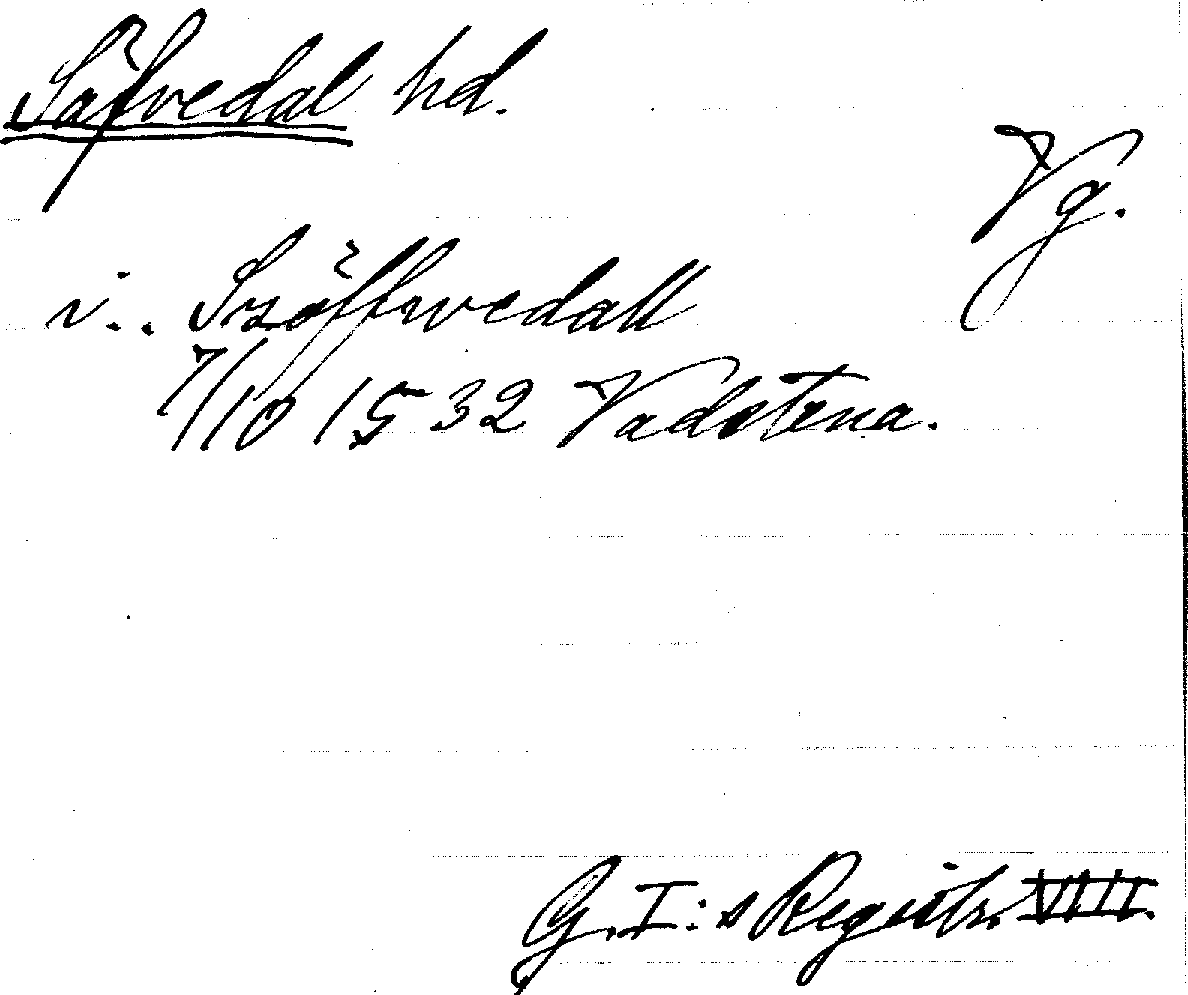 Säfvedal hd.
Vg.
i.. Szöffwedall
7/10 1532 Vadstena.
G. I:s Registr. VIII.